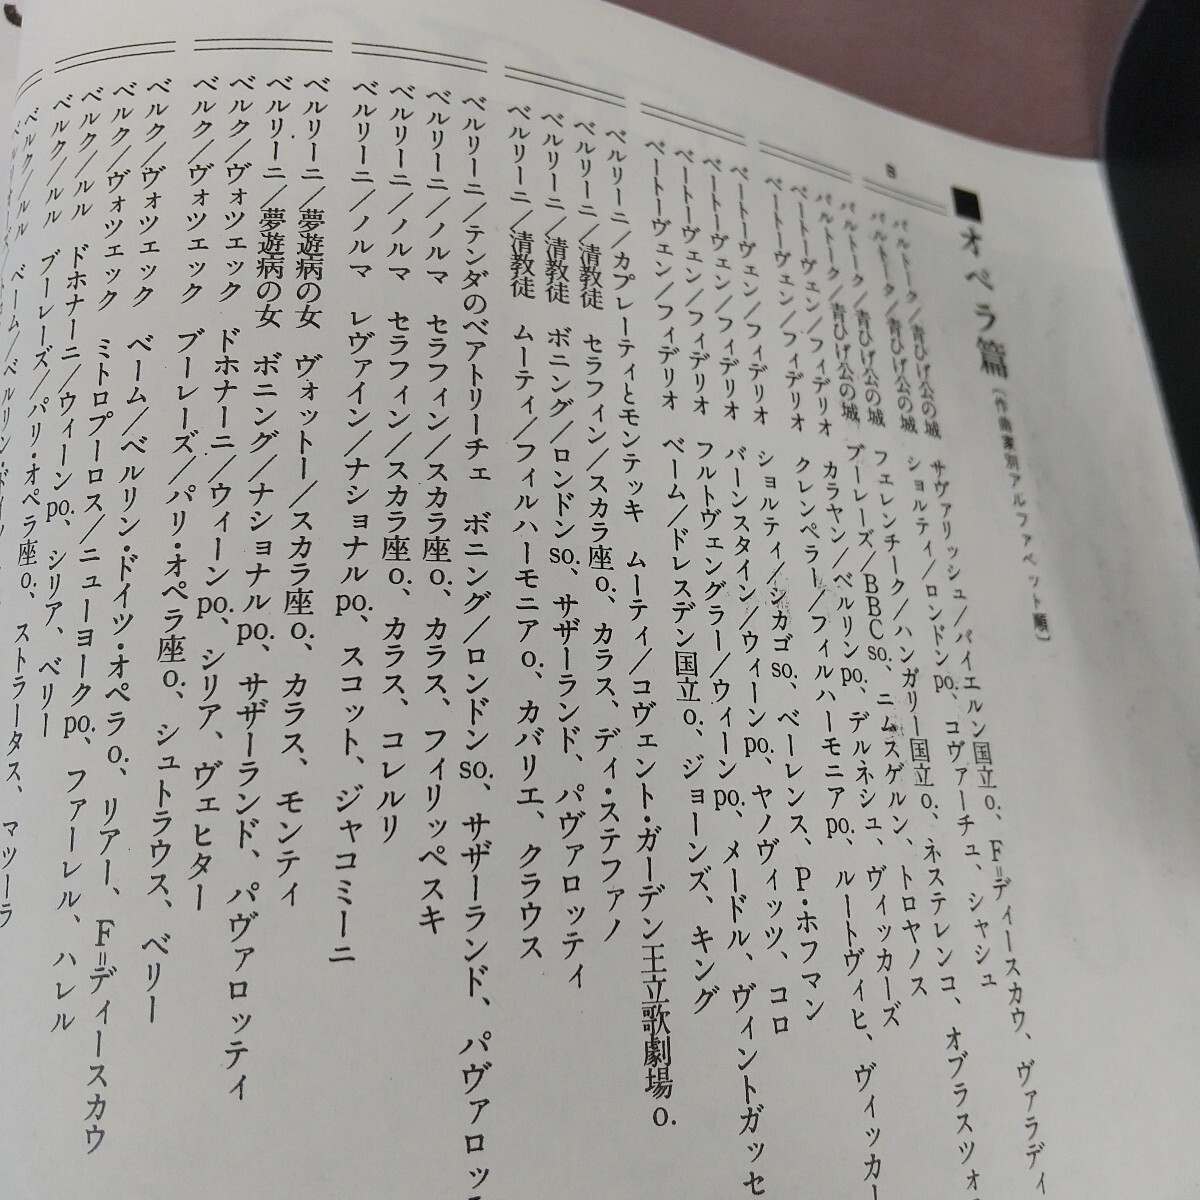 ■オペラ篇(作曲家別アルファベット順)
B
バルトーク/青ひげ公の城 サヴァリッシュ/バイエルン国立o.、F=ディースカウ、ヴァラディ
バルトーク/青ひげ公の城 ショルティ/ロンドンpo.、コヴァーチュ、シャシュ
バルトーク/青ひげ公の城 フェレンチーク/ハンガリー国立o.、ネステレンコ、オブラスツォ
バルトーク/青ひげ公の城 ブーレーズ/BBC so.、ニムスゲルン、トロヤノス
ベートーヴェン/フィデリオ カラヤン/ベルリンpo.、デルネシュ、ヴィッカーズ
ベートーヴェン/フィデリオ クレンペラー/フィルハーモニアpo.、ルートヴィヒ、ヴィッカー
ベートーヴェン/フィデリオ ショルティ/シカゴso.、ベーレンス、P・ホフマン
ベートーヴェン/フィデリオ バーンスタイン/ウィーンpo.、ヤノヴィッツ、コロ
ベートーヴェン/フィデリオ フルトヴェングラー/ウィーンpo.、メードル、ヴィントガッセ
ベートーヴェン/フィデリオ ベーム/ドレスデン国立o.、ジョーンズ、キング
ベルリーニ/カプレーティとモンテッキ ムーティ/コヴェント・ガーデン王立歌劇場o.
ベルリーニ/清教徒 セラフィン/スカラ座o.、カラス、ディ・ステファノ
ベルリーニ/清教徒 ボニング/ロンドンso.、サザーランド、パヴァロッティ
ベルリーニ/清教徒 ムーティ/フィルハーモニアo.、カバリエ、クラウス
ベルリーニ/テンダのベアトリーチェ ボニング/ロンドンso.、サザーランド、パヴァロッ
ベルリーニ/ノルマ セラフィン/スカラ座o.、カラス、フィリッペスキ
ベルリーニ/ノルマ セラフィン/スカラ座o.、カラス、コレルリ
ベルリーニ/ノルマ レヴァイン/ナショナルpo.、スコット、ジャコミーニ
ベルリーニ/夢遊病の女 ヴォットー/スカラ座o.、カラス、モンティ
ベルリーニ/夢遊病の女 ボニング/ナショナルpo.、サザーランド、パヴァロッティ
ベルク/ヴォツェック ドホナーニ/ウィーンpo.、シリア、ヴェヒター
ベルク/ヴォツェック ブーレーズ/パリ・オペラ座o.、シュトラウス、ベリー
ベルク/ヴォツェック ベーム/ベルリン・ドイツ・オペラo.、リアー、F=ディースカウ
ベルク/ヴォツェック ミトロプーロス/ニューヨークpo.、ファーレル、ハレル
ベルク/ルル ドホナーニ/ウィーンpo.、シリア、ベリー
ベルク/ルル ブーレーズ/パリ・オペラ座o.、ストラータス、マツーラ
ベルク/ルル ベーム/ベルリン・ドイツ